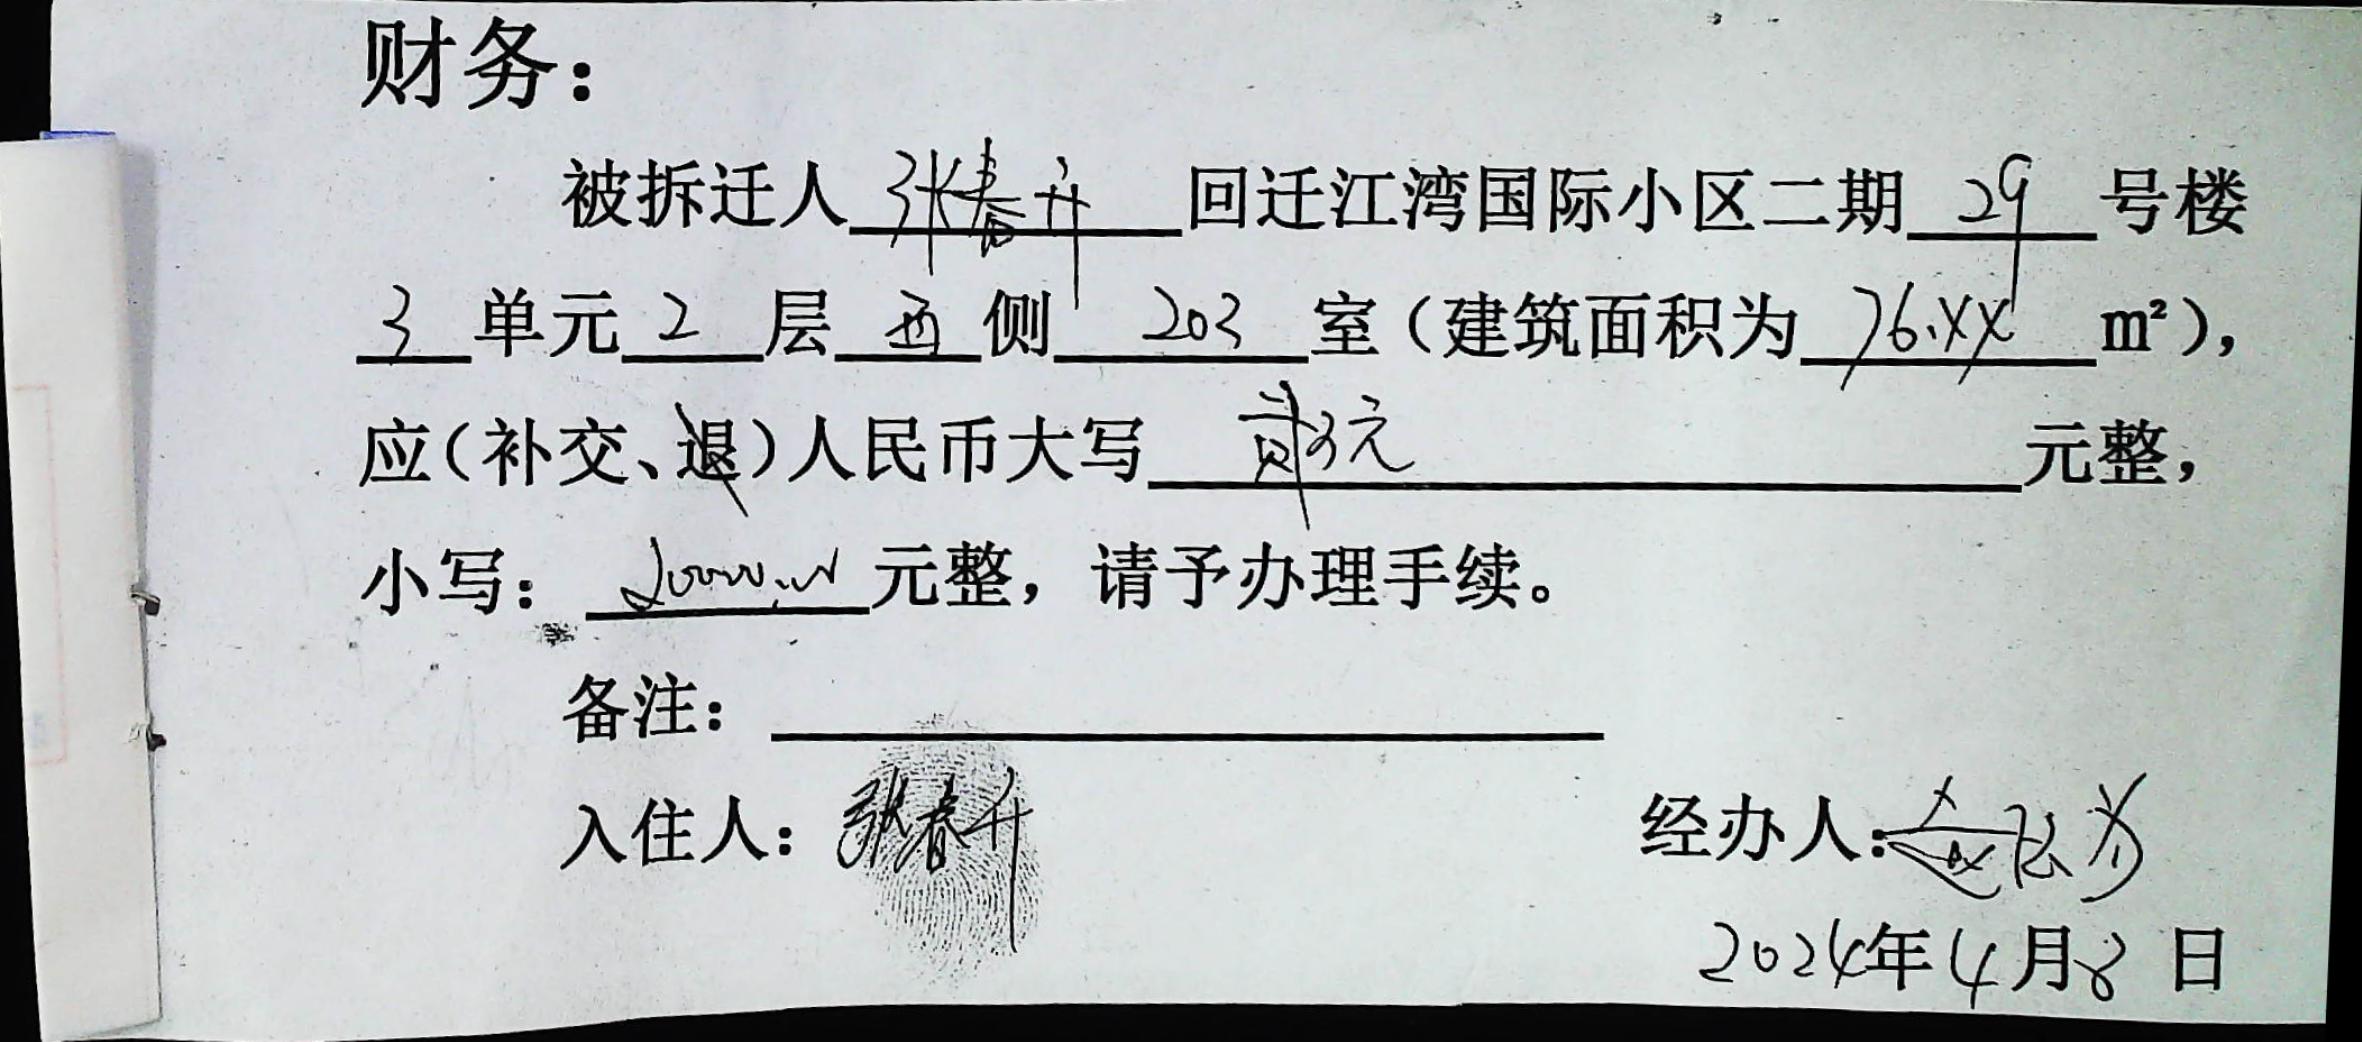 财务:
被拆迁人张春升回迁江湾国际小区二期29号楼
3单元2层西侧203室(建筑面积为76.XXm²),
应(补交、退)人民币大写贰万元元整,
小写:20000.00元整,请予办理手续。
备注:
入住人:张春升 经办人:
2024年4月8日